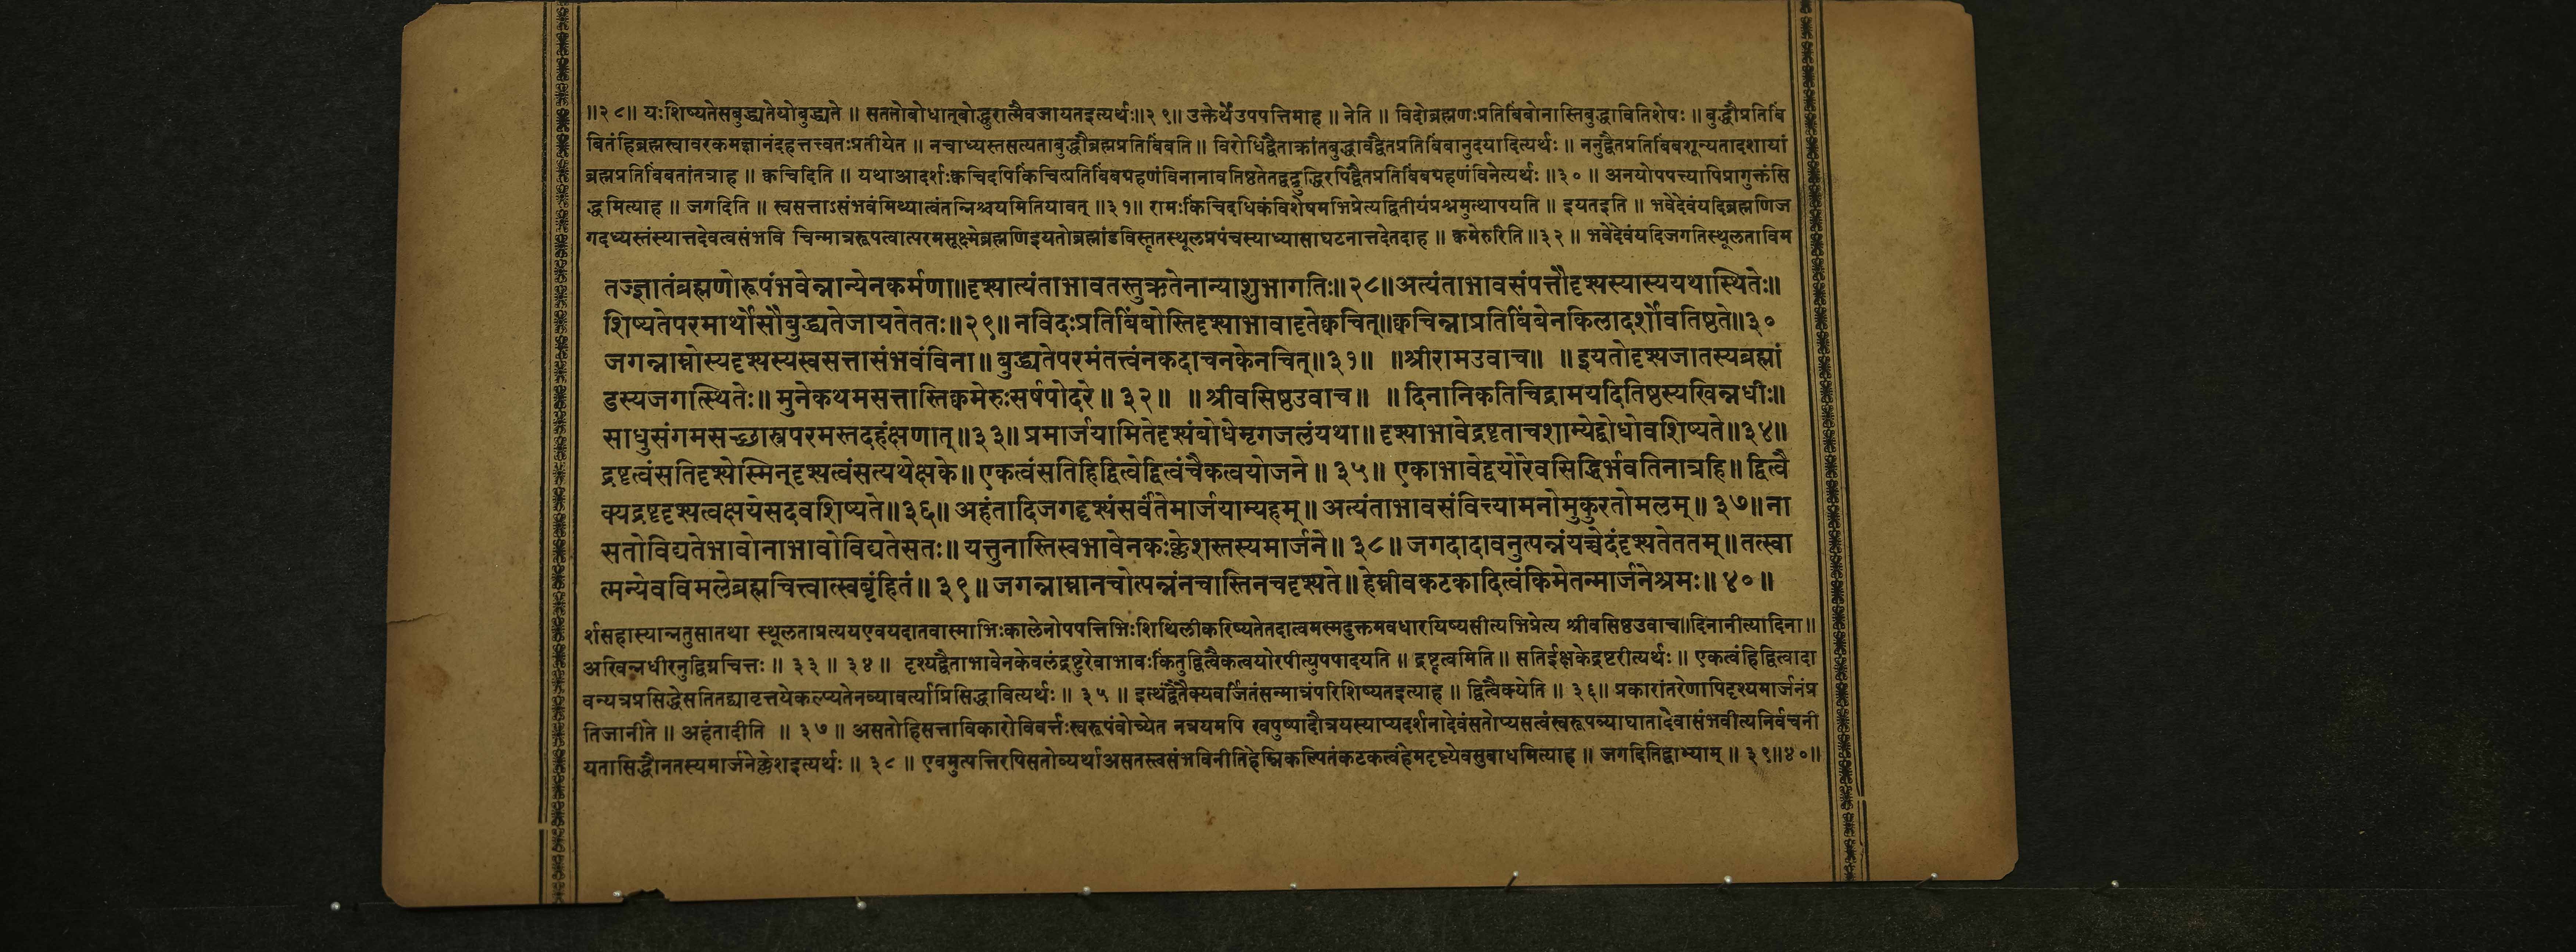 ॥२८॥ यःशिष्यतेसबुद्ध्यतेयोबुद्ध्यते ॥ सततोबोधात्बोद्धुरात्मैवजायतइत्यर्थः॥२९॥ उक्तेर्थेउपपत्तिमाह ॥ नेति ॥ विदोब्रह्मणःप्रतिबिंबोनास्तिबुद्धावितिशेषः ॥ बुद्धौप्रतिबिं
बितंहिब्रह्मस्वावरकमज्ञानंदहत्तत्त्वतःप्रतीयेत ॥ नचाध्यस्तसत्यताबुद्धौब्रह्मप्रतिबिंबति ॥ विरोधिद्वैताक्रांतबुद्धावद्वैतप्रतिबिंबानुदयादित्यर्थः ॥ ननुद्वैतप्रतिबिंबशून्यतादशायां
ब्रह्मप्रतिबिंबतांतत्राह ॥ क्वचिदिति ॥ यथाआदर्शःक्वचिदपिकिंचित्प्रतिबिंबग्रहणंविनानावतिष्ठतेतद्वद्बुद्धिरपिद्वैतप्रतिबिंबग्रहणंविनेत्यर्थः ॥३०॥ अनयोपपत्त्यापिप्रागुक्तंसि
द्धमित्याह ॥ जगदिति ॥ स्वसत्ताऽसंभवंमिथ्यात्वंतन्निश्चयमितियावत् ॥३१॥ रामःकिंचिदधिकंविशेषमभिप्रेत्यद्वितीयंप्रश्नमुत्थापयति ॥ इयतइति ॥ भवेदेवंयदिब्रह्मणिज
गदध्यस्तंस्यात्तदेवत्वसंभवि चिन्मात्ररूपत्वात्परमसूक्ष्मेब्रह्मणिइयतोब्रह्मांडविस्तृतस्थूलप्रपंचस्याध्यासाघटनात्तदेतदाह ॥ क्वमेरुरिति॥३२॥ भवेदेवंयदिजगतिस्थूलताविम
तज्ज्ञातंब्रह्मणोरूपंभवेन्नान्येनकर्मणा॥दृश्यात्यंताभावतस्तुऋतेनान्याशुभागतिः॥२८॥अत्यंताभावसंपत्तौदृश्यस्यास्ययथास्थितेः॥
शिष्यतेपरमार्थोसौबुद्ध्यतेजायतेततः॥२९॥ नविदःप्रतिबिंबोस्तिदृश्याभावादृतेक्वचित्॥क्वचिन्नाप्रतिबिंबेनकिलादर्शोवतिष्ठते॥३०
जगन्नाम्नोस्यदृश्यस्यस्वसत्तासंभवंविना॥ बुद्ध्यतेपरमंतत्त्वंनकदाचनकेनचित्॥३१॥ ॥श्रीरामउवाच॥ ॥इयतोदृश्यजातस्यब्रह्मां
डस्यजगत्स्थितेः॥ मुनेकथमसत्तास्तिक्वमेरुःसर्षपोदरे॥ ३२॥ ॥श्रीवसिष्ठउवाच॥ ॥दिनानिकतिचिद्रामयदितिष्ठस्यखिन्नधीः॥
साधुसंगमसच्छास्त्रपरमस्तदहंक्षणात्॥३३॥ प्रमार्जयामितेदृश्यंबोधेमृगजलंयथा॥ दृश्याभावेद्रष्टृताचशाम्येद्बोधोवशिष्यते॥३४॥
द्रष्टृत्वंसतिदृश्येस्मिन्दृश्यत्वंसत्यथेक्षके॥ एकत्वंसतिहिद्वित्वेद्वित्वंचैकत्वयोजने॥ ३५॥ एकाभावेद्वयोरेवसिद्धिर्भवतिनात्रहि॥ द्वित्वै
क्यद्रष्टृदृश्यत्वक्षयेसदवशिष्यते॥३६॥ अहंतादिजगद्दृश्यंसर्वंतेमार्जयाम्यहम्॥ अत्यंताभावसंवित्त्यामनोमुकुरतोमलम्॥ ३७॥ ना
सतोविद्यतेभावोनाभावोविद्यतेसतः॥ यत्तुनास्तिस्वभावेनकःक्लेशस्तस्यमार्जने॥ ३८॥ जगदादावनुत्पन्नंयच्चेदंदृश्यतेततम्॥ तत्स्वा
त्मन्येवविमलेब्रह्मचित्त्वात्स्वबृंहितं॥ ३९॥ जगन्नाम्नानचोत्पन्नंनचास्तिनचदृश्यते॥ हेम्नीवकटकादित्वंकिमेतन्मार्जनेश्रमः॥ ४०॥
र्शसहास्यान्नतुसातथा स्थूलताप्रत्ययएवयदातवास्माभिःकालेनोपपत्तिभिःशिथिलीकरिष्यतेतदात्वमस्मदुक्तमवधारयिष्यसीत्यभिप्रेत्य श्रीवसिष्ठउवाच॥दिनानीत्यादिना॥
अखिन्नधीरनुद्विग्नचित्तः ॥ ३३ ॥ ३४ ॥ दृश्यद्वैताभावेनकेवलंद्रष्टुरेवाभावःकिंतुद्वित्वैकत्वयोरपीत्युपपादयति ॥ द्रष्टृत्वमिति ॥ सतिईक्षकेद्रष्टरीत्यर्थः ॥ एकत्वंहिद्वित्वादा
वन्यत्रप्रसिद्धेसतितद्व्यावृत्तयेकल्प्यतेनव्यावर्त्याप्रिसिद्धावित्यर्थः ॥ ३५ ॥ इत्थंद्वैतैक्यवर्जितंसन्मात्रंपरिशिष्यतइत्याह ॥ द्वित्वैक्येति ॥ ३६॥ प्रकारांतरेणापिदृश्यमार्जनंप्र
तिजानीते ॥ अहंतादीति ॥ ३७ ॥ असतोहिसत्ताविकारोविवर्त्तःस्वरूपंवोच्येत नत्रयमपि खपुष्पादौत्रयस्याप्यदर्शनादेवंसतोप्यसत्वंस्वरूपव्याघातादेवासंभवीत्यनिर्वचनी
यतासिद्धौनतस्यमार्जनेक्लेशइत्यर्थः ॥ ३८ ॥ एवमुत्पत्तिरपिसतोव्यर्थाअसतस्त्वसंभविनीतिहेम्निकल्पितंकटकत्वंहेमदृष्ट्येवसुबाधमित्याह ॥ जगदितिद्वाभ्याम् ॥ ३९॥४०॥